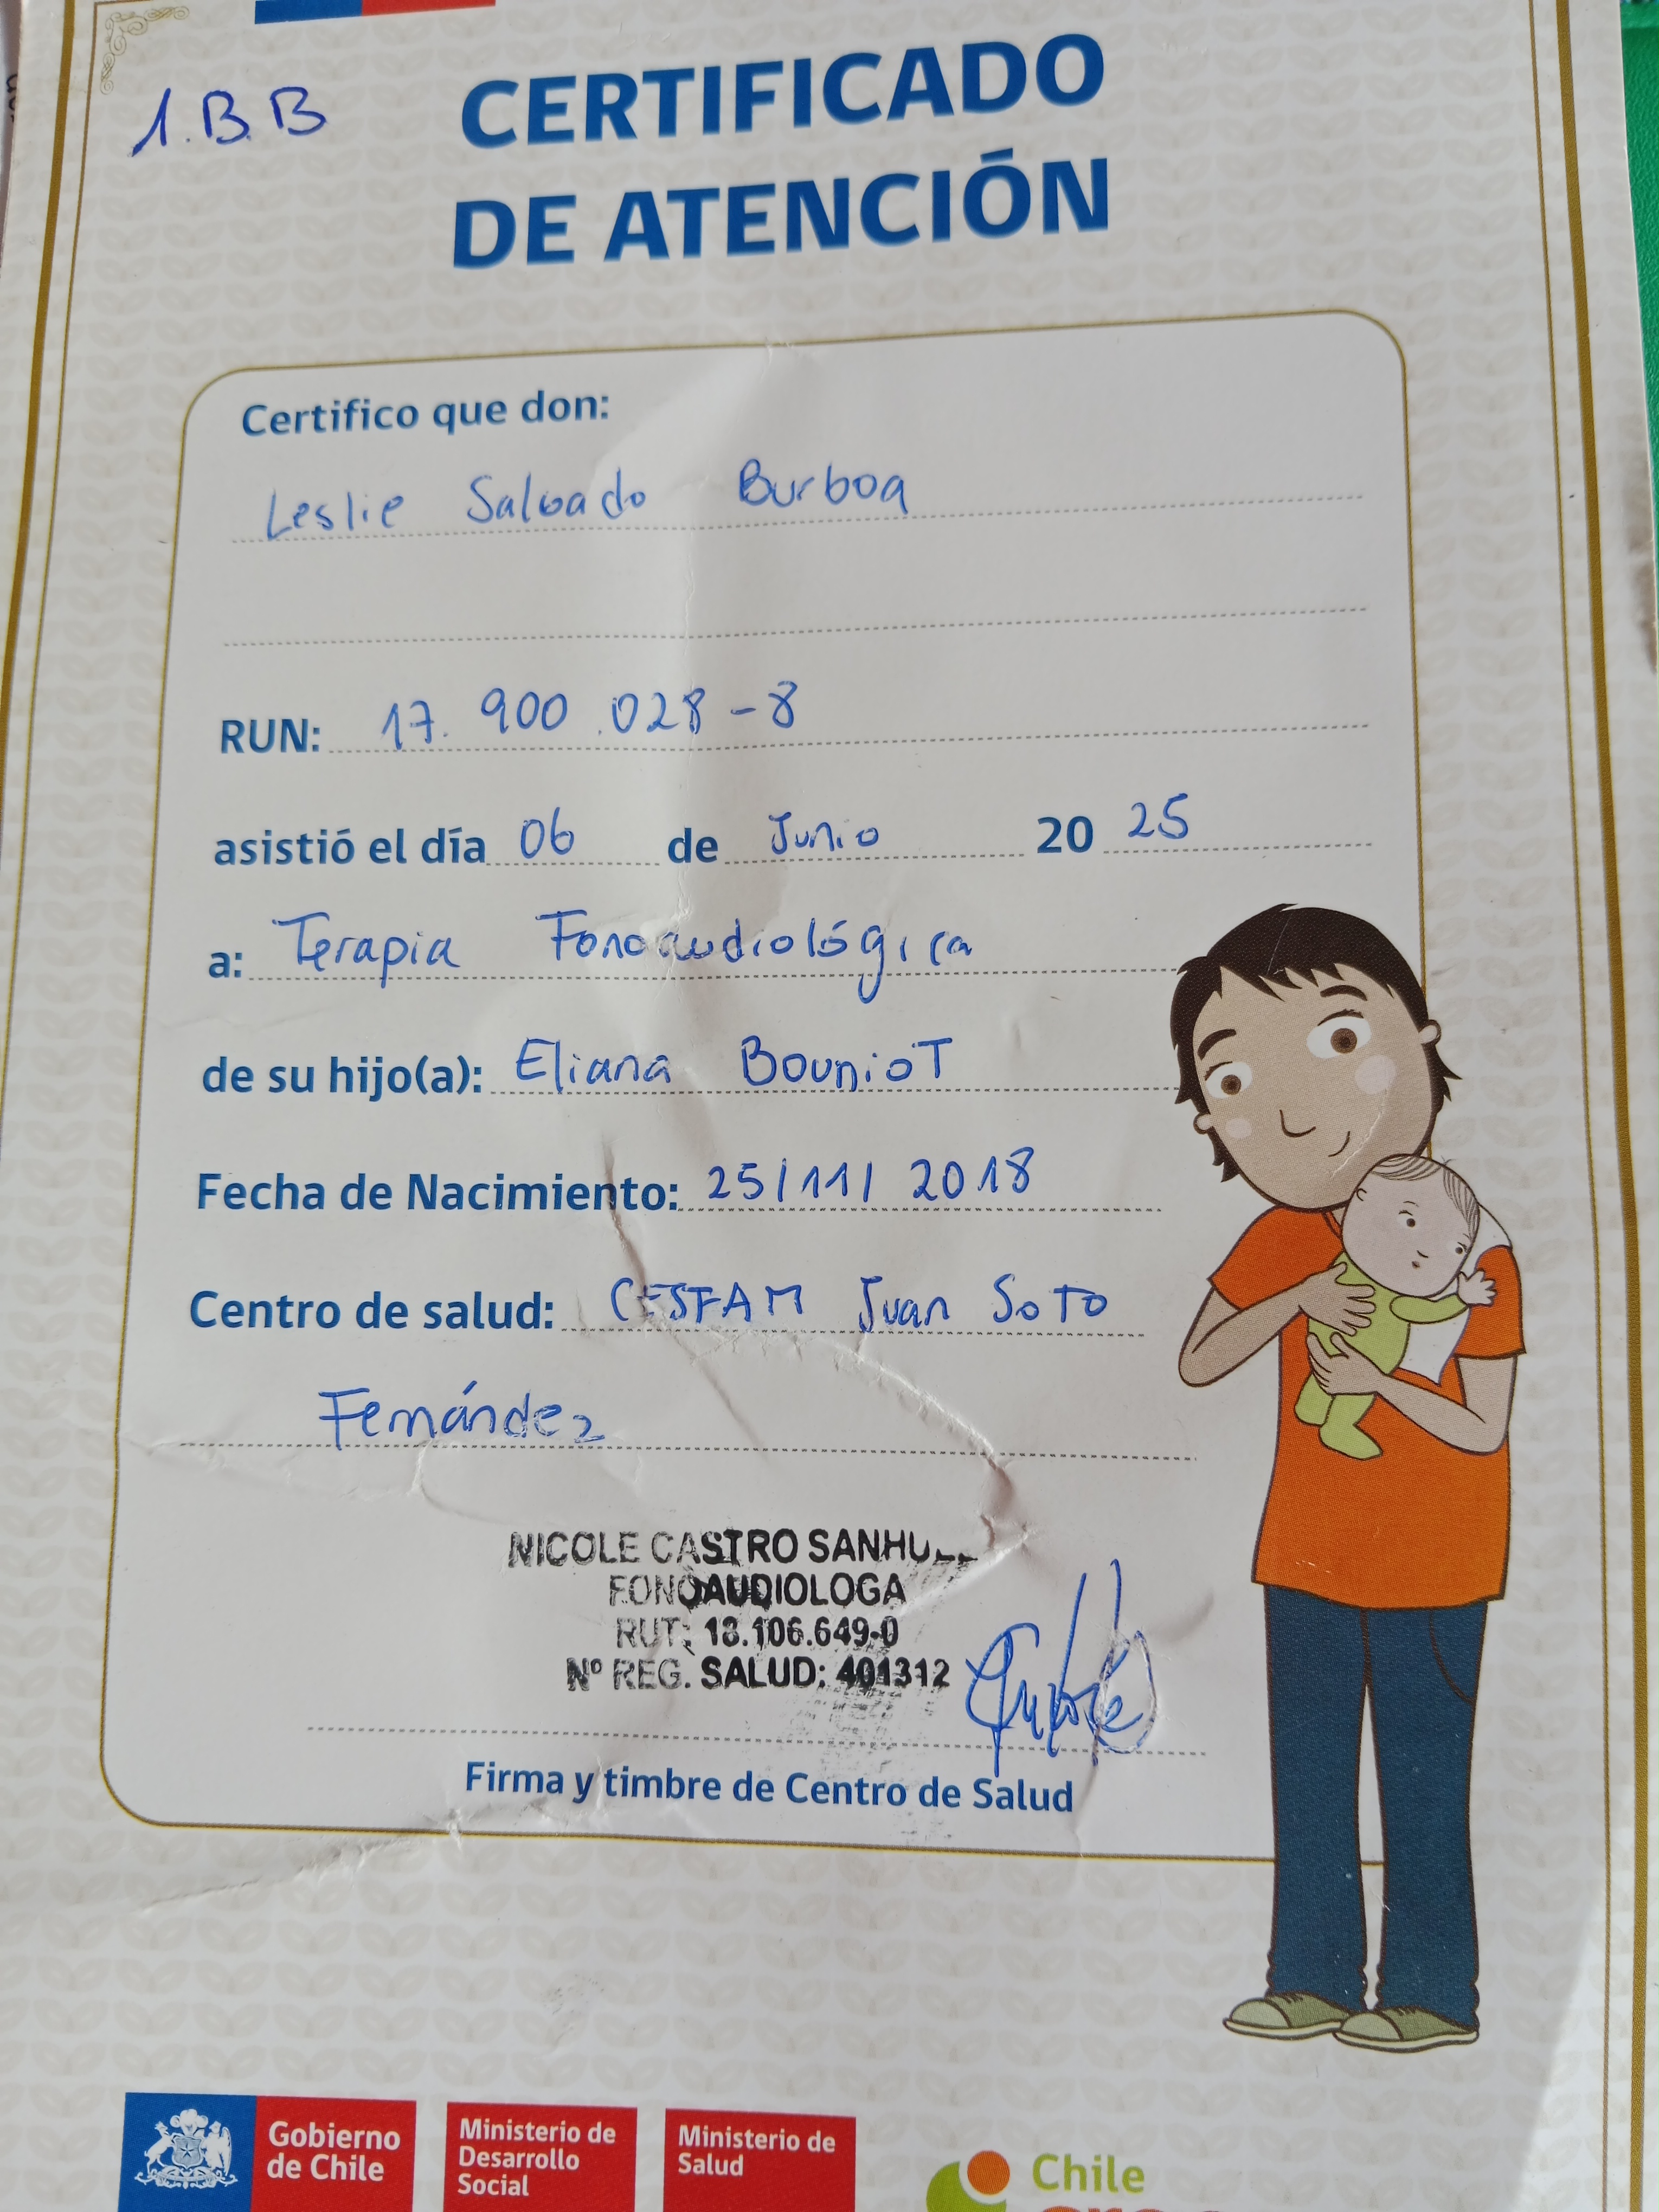 1.B.B
CERTIFICADO
DE ATENCIÓN
Certifico que don:
Leslie Salgado Burboa
RUN: 17.900.028-8
asistió el día 06 de Junio 20 25
a: Terapia Fonoaudiológica
de su hijo(a): Eliana Bouniot
Fecha de Nacimiento: 25/11/2018
Centro de salud: CESFAM Juan Soto
Fernández
NICOLE CASTRO
FONOAUDIOLOGA
RUT: 18.106.649-0
Nº REG. SALUD: 401312
Firma y timbre de Centro de Salud
Gobierno
de Chile
Ministerio de
Desarrollo
Social
Ministerio de
Salud
Chile